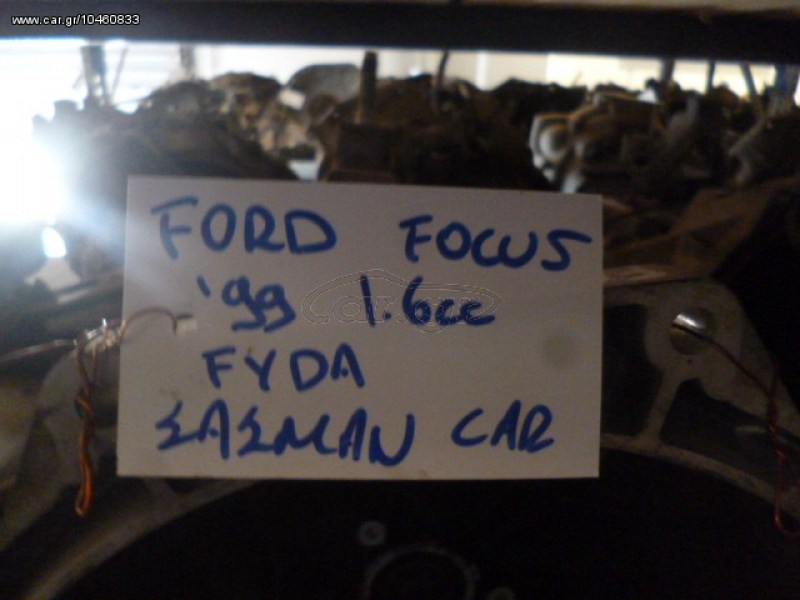 www.car.gr/10460833
FORD FOCUS
'99 1.6cc
FYDA
ΣΑΣΜΑΝ CAR